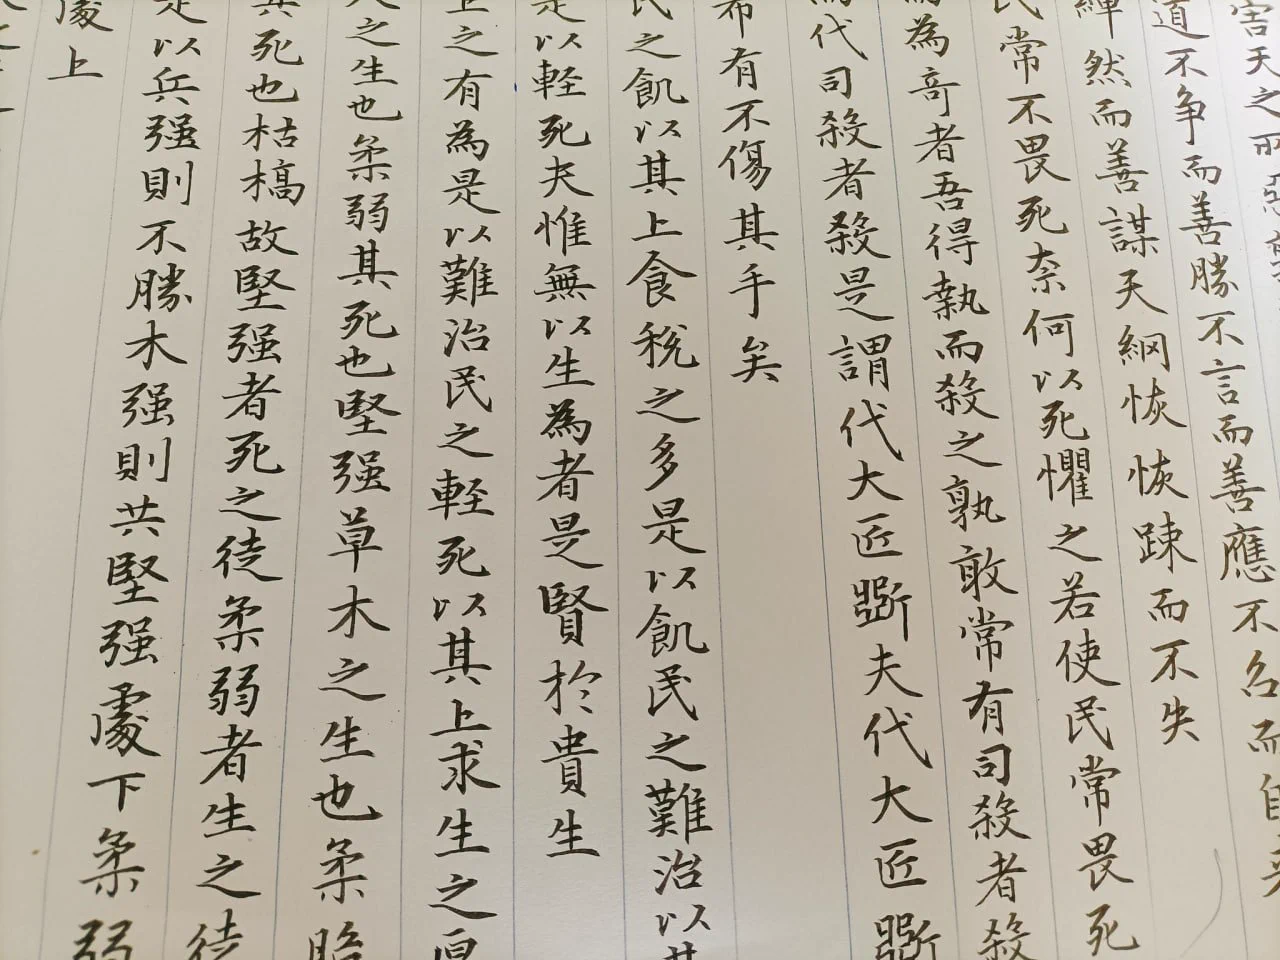 害天之所惡
道不争而善勝不言而善應不名而自來
繟然而善謀天網恢恢踈而不失
民常不畏死奈何以死懼之若使民常畏死
為竒者吾得執而殺之孰敢常有司殺者殺
代司殺者殺是謂代大匠斵夫代大匠斵
希有不傷其手矣
民之飢以其上食税之多是以飢民之難治以其
上之有為是以難治民之軽死以其上求生之厚
是以軽死夫惟無以生為者是賢於貴生
人之生也柔弱其死也堅强草木之生也柔脆
其死也枯槁故堅强者死之徒柔弱者生之徒
是以兵强則不勝木强則共堅强處下柔弱
處上